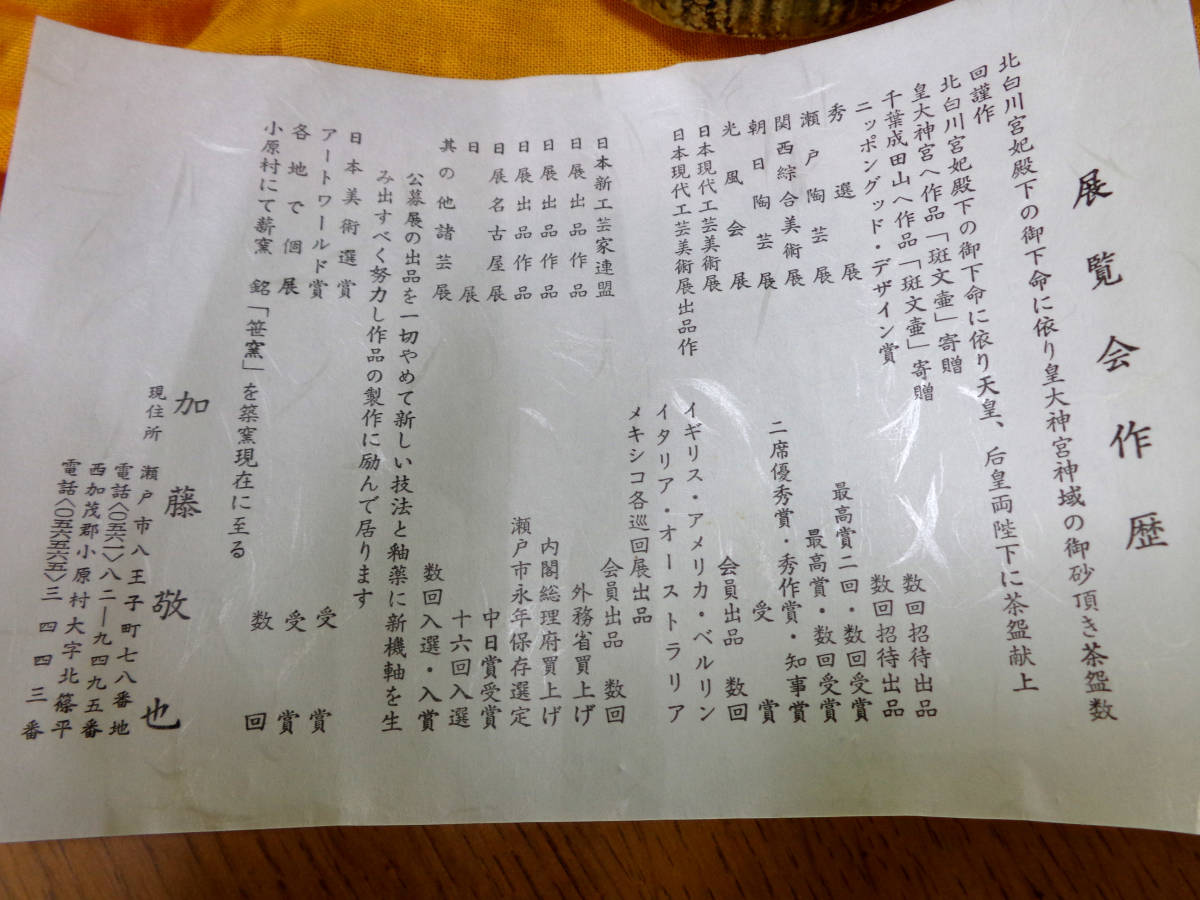 展覧会作歴
北白川宮妃殿下の御下命に依り皇大神宮神域の御砂頂き茶盌数
回謹作
北白川宮妃殿下の御下命に依り天皇、后皇両陛下に茶盌献上
皇大神宮へ作品「斑文壷」寄贈
千葉成田山へ作品「斑文壷」寄贈
ニッポングッド・デザイン賞 数回招待出品
秀選展 数回招待出品
瀬戸陶芸展 最高賞二回・数回受賞
関西綜合美術展 最高賞・数回受賞
朝日陶芸展 二席優秀賞・秀作賞・知事賞
光風会展 受賞
日本現代工芸美術展 会員出品 数回
日本現代工芸美術展出品作 イギリス・アメリカ・ベルリン
イタリア・オーストラリア
メキシコ各巡回展出品
日本新工芸家連盟 会員出品 数回
日展出品作品 外務省買上げ
日展出品作品 内閣総理府買上げ
日展出品作品 瀬戸市永年保存選定
日展名古屋展 中日賞受賞
日展 十六回入選
其の他諸芸展 数回入選・入賞
公募展の出品を一切やめて新しい技法と釉薬に新機軸を生
み出すべく努力し作品の製作に励んで居ります
日本美術選賞 受賞
アートワールド賞 受賞
各地で個展 数回
小原村にて薪窯 銘「笹窯」を築窯現在に至る
加藤敬也
現住所 瀬戸市八王子町七八番地
電話〈〇五六一〉八二―九四九五番
西加茂郡小原村大字北篠平
電話〈〇五六五六五〉三四四三番